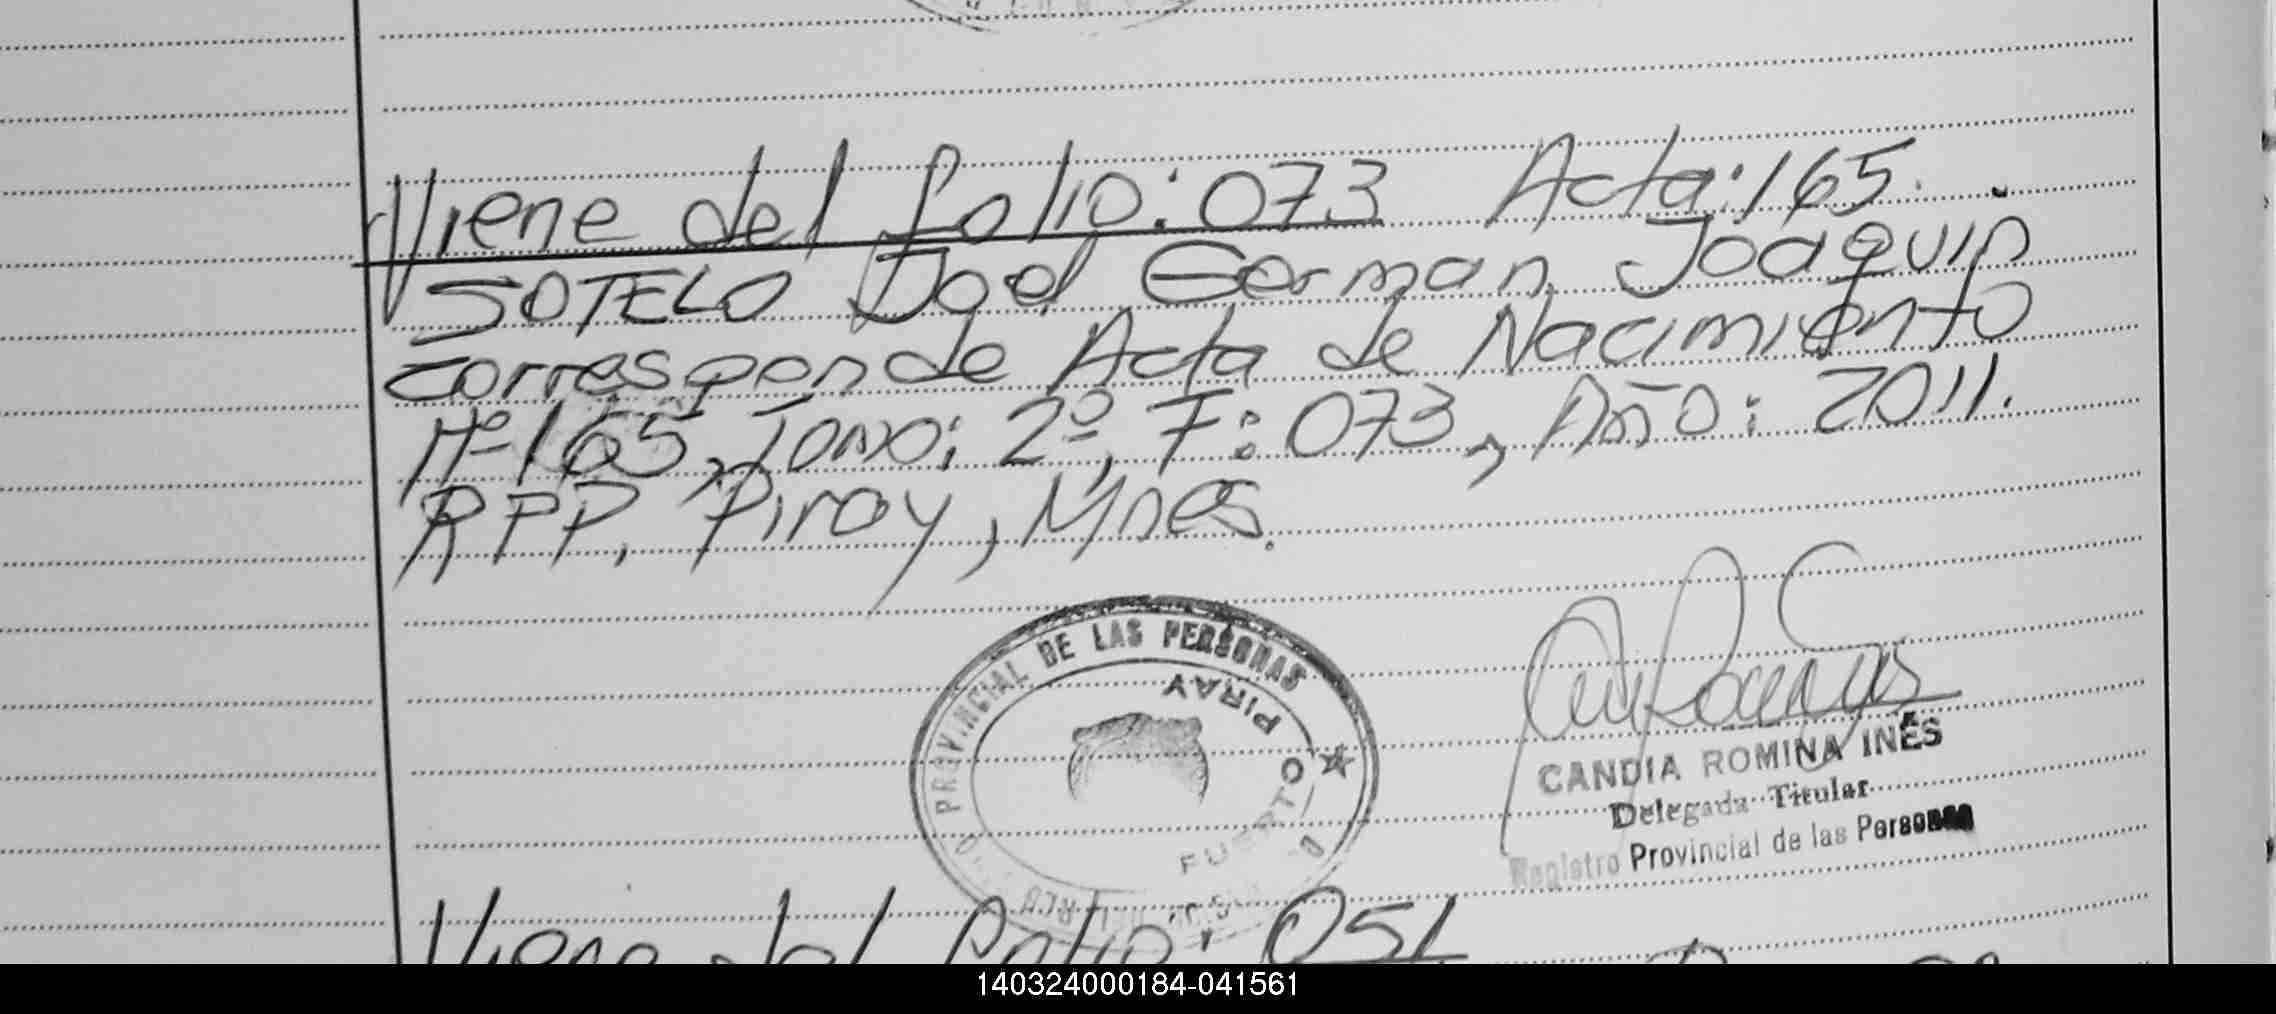 Viene del folio: 073 Acta: 165.
SOTELO Joel German Joaquin
corresponde Acta de Nacimiento
Nº 165, Tomo: 2º, F: 073, Año: 2011.
RPP, Piray, Mnes.
PROVINCIAL DE LAS PERSONAS
PUERTO PIRAY
CANDIA ROMINA INÉS
Delegada Titular
Registro Provincial de las Personas
Viene del folio: 051
140324000184-041561